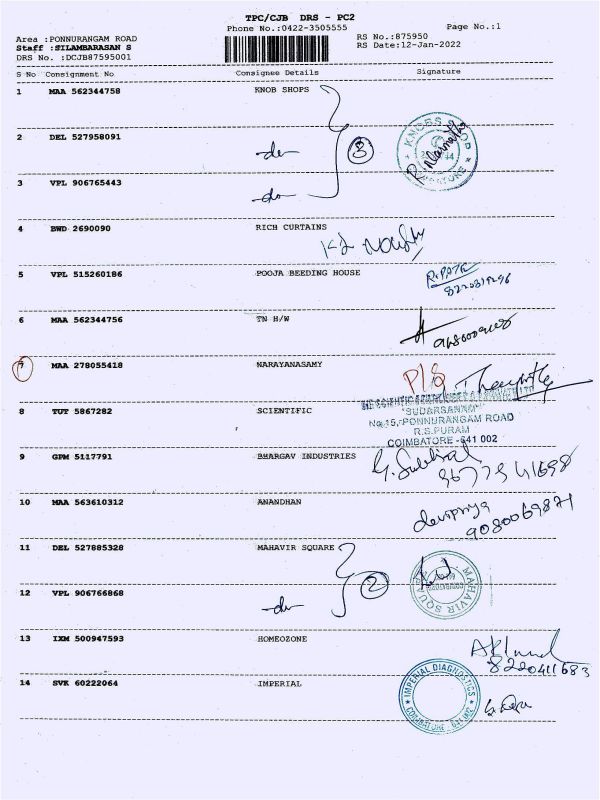 TPC/CJB DRS - PC2
Phone No.:0422-3505555
Page No.:1
Area :PONNURANGAM ROAD
Staff :SILAMBARASAN S
DRS No. :DCJB87595001
RS No.:875950
RS Date:12-Jan-2022
S No Consignment No Consignee Details Signature
1 MAA 562344758 KNOB SHOPS
2 DEL 527958091 -do-
3
3 VPL 906765443 -do-
4 BWD 2690090 RICH CURTAINS
5 VPL 515260186 POOJA BEEDING HOUSE
6 MAA 562344756 TN H/W
7 MAA 278055418 NARAYANASAMY
P/S
8 TUT 5867282 SCIENTIFIC
"SUDARSANAM"
No.15, PONNURANGAM ROAD
R.S.PURAM
COIMBATORE -641 002
9 GPM 5117791 BHARGAV INDUSTRIES
10 MAA 563610312 ANANDHAN
devipriya
9080069871
11 DEL 527885328 MAHAVIR SQUARE
2
MAHAVIR SQUARE
12 VPL 906766868 -do-
13 IXM 500947593 HOMEOZONE
8220411683
14 SVK 60222064 IMPERIAL
IMPERIAL DIAGNOSTICS
COIMBATORE - 641 002